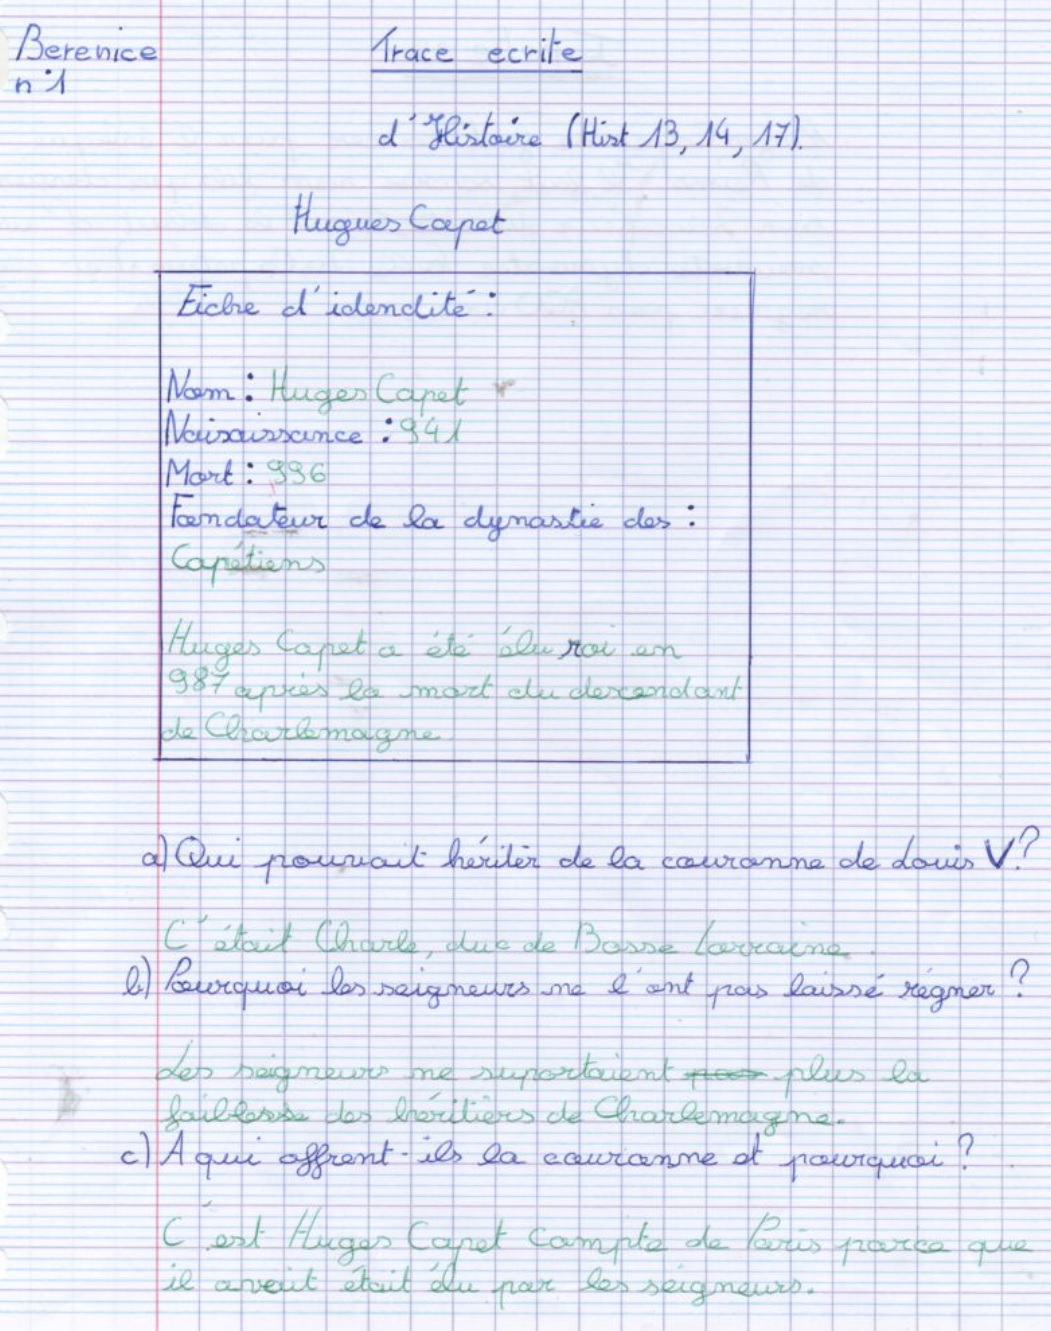 Berenice
n°1
Trace ecrite
d'Histoire (Hist 13, 14, 17).
Hugues Capet
Fiche d'idendité :
Nom : Huges Capet
Naisaissance : 941
Mort : 996
Fondateur de la dynastie des :
Capétiens
Huges Capet a été élu roi en
987 après la mort du descendant
de Charlemagne
a) Qui pouvait hériter de la couronne de Louis V ?
C'était Charle, duc de Basse Lorraine.
b) Pourquoi les seigneurs ne l'ont pas laissé régner ?
Les seigneurs ne suportaient plus la
faiblesse des héritiers de Charlemagne.
c) A qui offrent-ils la couronne et pourquoi ?
C'est Huges Capet Compte de Paris parce que
il avait était élu par les seigneurs.